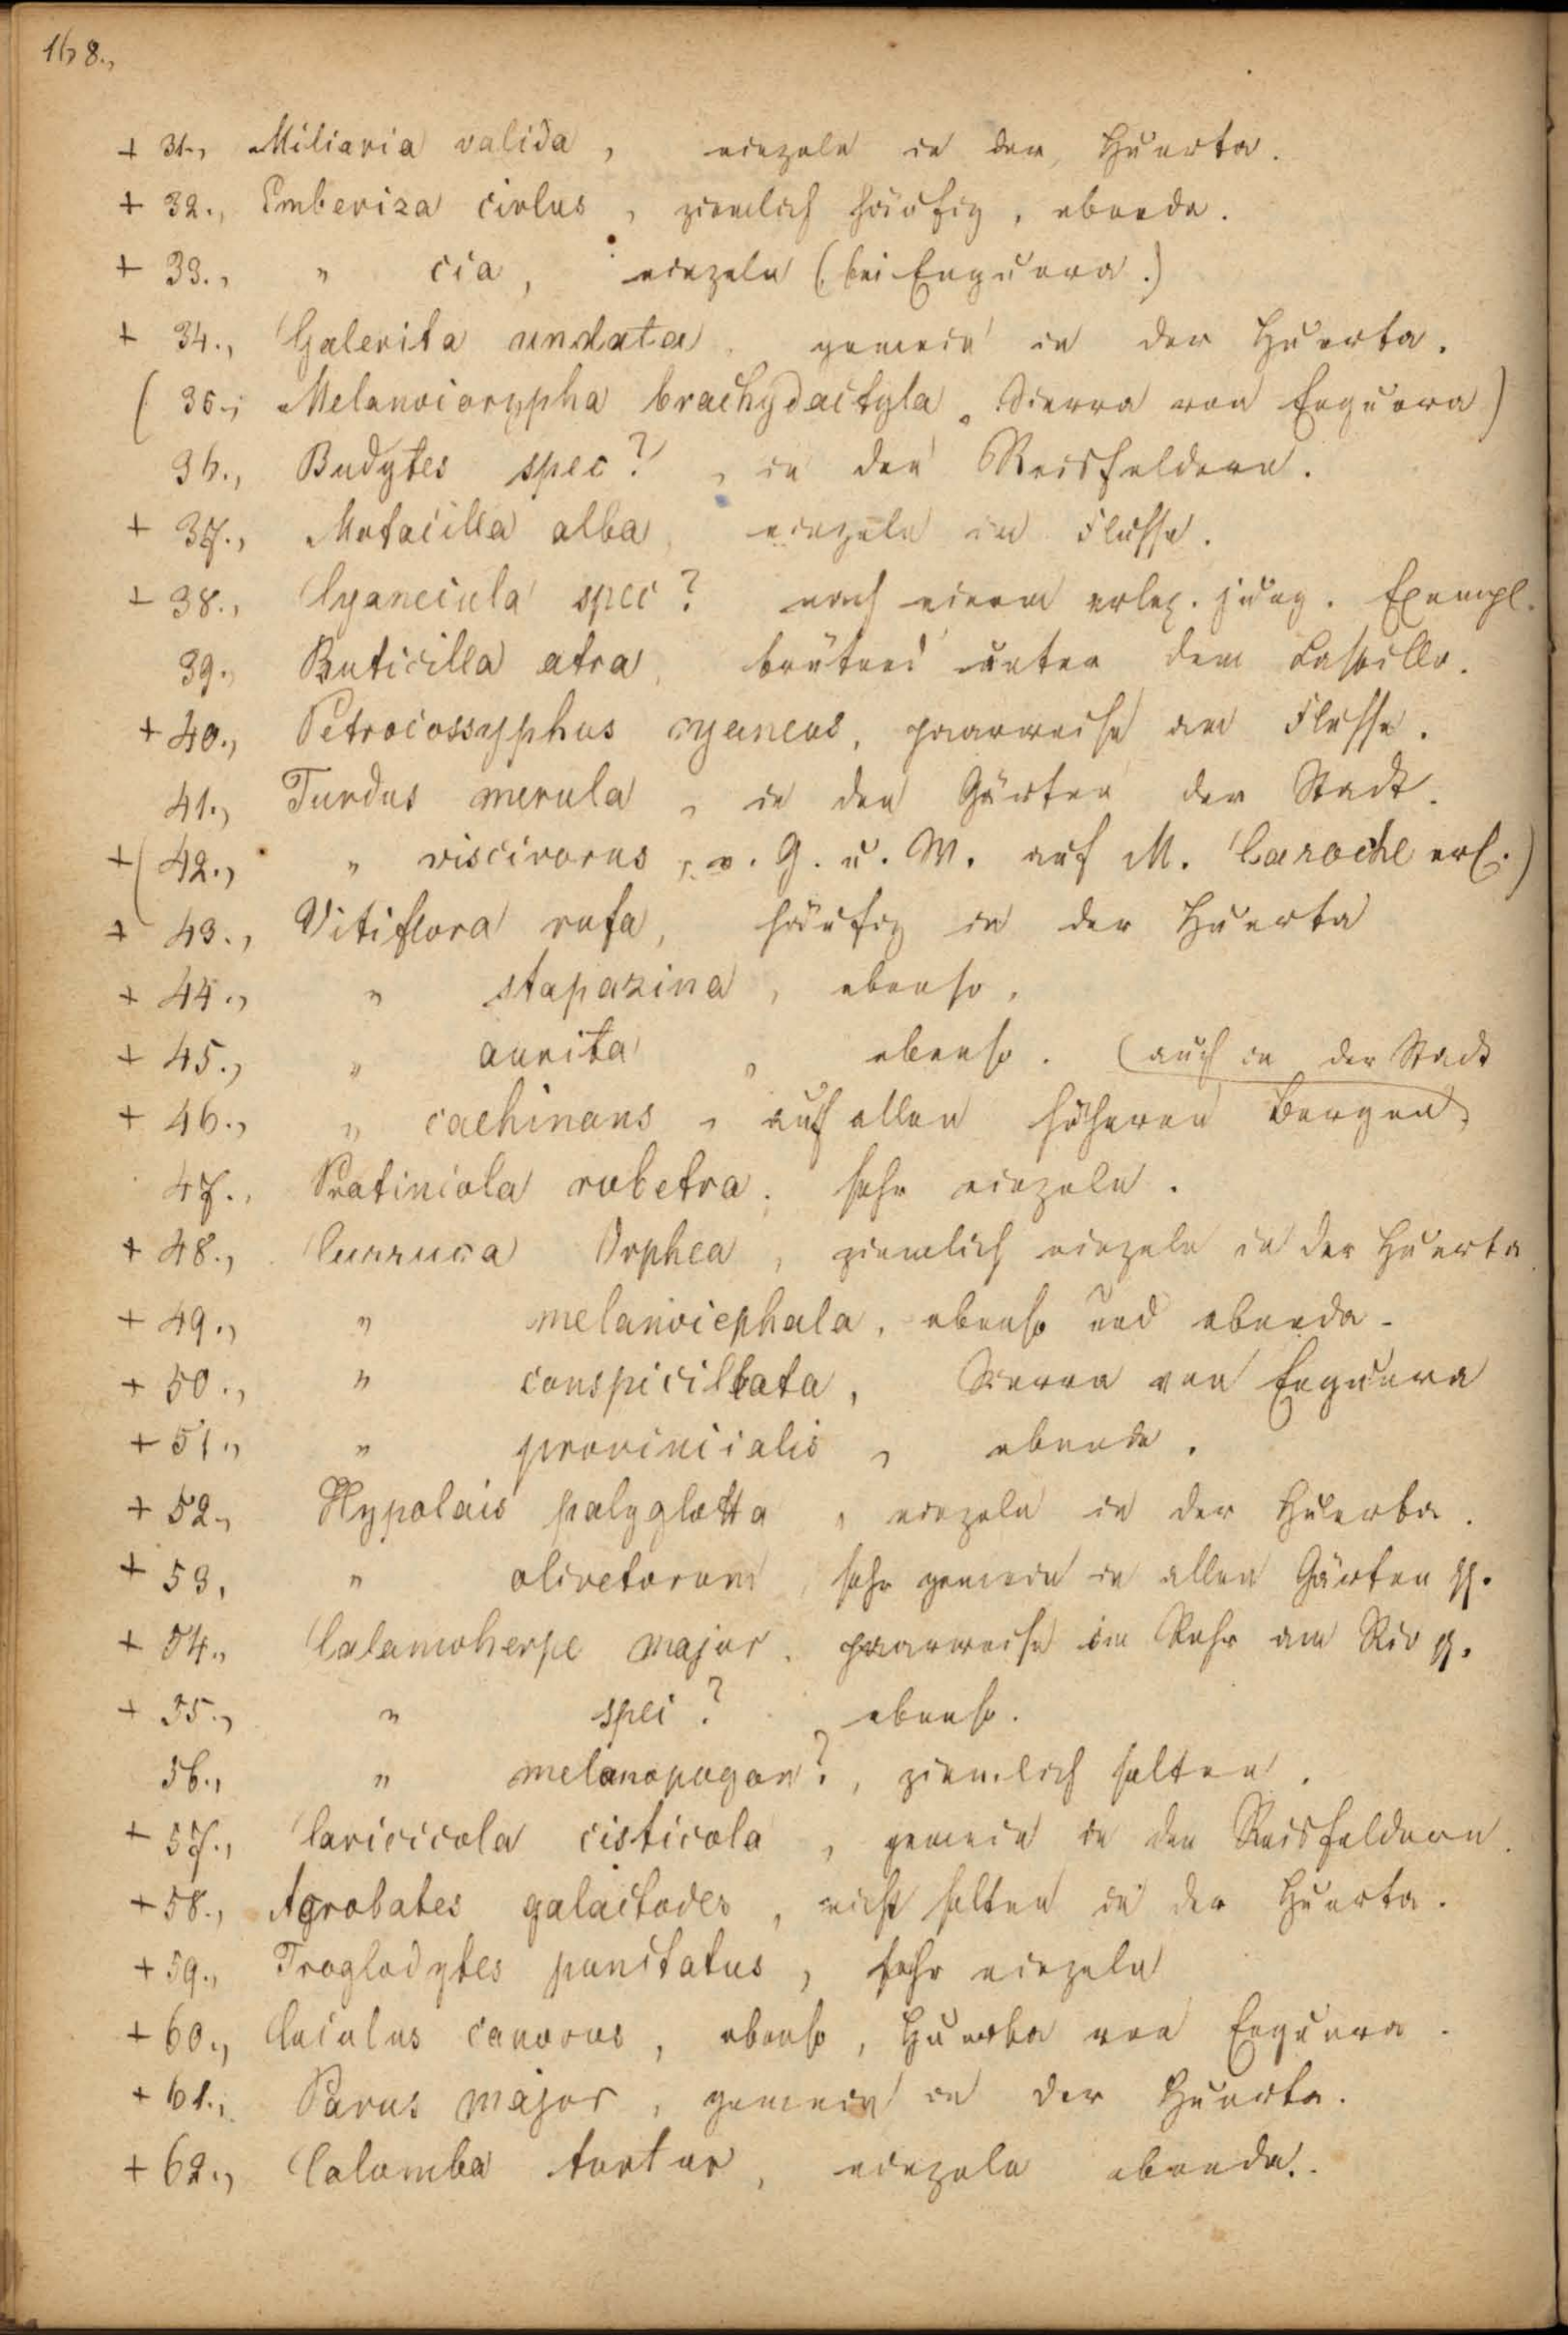 168.,
+ 31., Miliaria valida, einzeln in der Huerta.
+ 32., Emberiza cirlus, ziemlich häufig, ebenda.
+ 33., " cia, einzeln (bei Enguera.)
+ 34., Galerita undata, gemein in der Huerta.
( 35., Melanocorypha brachydactyla, Sierra von Enguera)
36., Budytes spec?, in den Reisfeldern.
+ 37., Motacilla alba, einzeln im Flusse.
+ 38., Cyanecula spec? nach einem erleg. jung. Exempl.
39., Ruticilla atra, brütend unter dem Castillo.
+ 40., Petrocossyphus cyaneus, paarweise am Flusse.
41., Turdus merula, in den Gärten der Stadt.
+( 42., " viscivorus, v. G. u. W. auf M. Caroche erl.)
+ 43., Vitiflora rufa, häufig in der Huerta
+ 44., " stapazina, ebenso.
+ 45., " aurita, ebenso. (auch in der Stadt
+ 46., " cachinans, auf allen höheren Bergen,
47., Pratincola rubetra, sehr einzeln.
+ 48., Curruca Orphea, ziemlich einzeln in der Huerta.
+ 49., " melanocephala, ebenso und ebenda.
+ 50., " conspicillata, Sierra von Enguera
+ 51., " provincialis, ebenda.
+ 52., Hypolais polyglotta, einzeln in der Huerta.
+ 53, " olivetorum, sehr gemein in allen Gärten pp.
+ 54., Calamoherpe major, paarweise im Rohr am Rio pp.
+ 55., " spec? ebenso.
56., " melanopogon?, ziemlich selten.
+ 57., Caricicola cisticola, gemein in den Reisfeldern.
+ 58., Agrobates galactodes, nicht selten in der Huerta.
+ 59., Troglodytes punctatus, sehr einzeln
+ 60., Cuculus canorus, ebenso, Huerta von Enguera.
+ 61., Parus major, gemein in der Huerta.
+ 62., Columba turtur, einzeln ebenda.